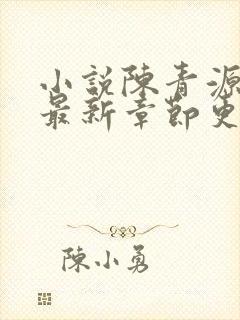 小説陳青源
最新章節更
陳小勇